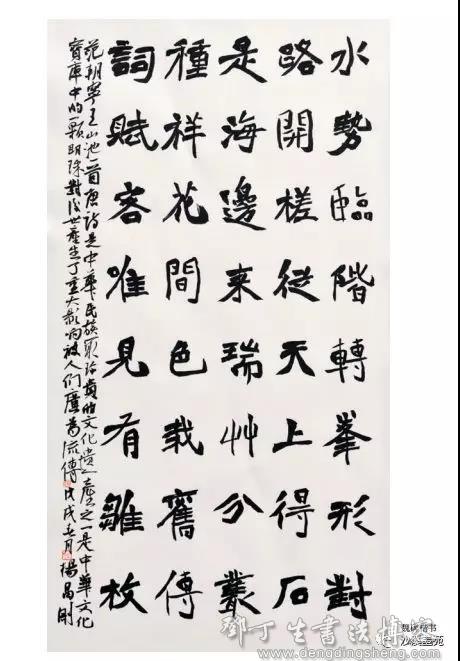 水勢臨階轉峯形對
路開槎從天上得石
是海邊来瑞艸分叢
種祥花間色栽舊傳
詞賦客唯見有雛枚
范朝寧王山池一首唐詩是中華民族最珍貴的文化遺產之一是中華文化
寶庫中的一顆明珠對後世產生了重大影响被人们廣為流傳戊戌春月楊昌刚
魏碑楷书
鄧丁生書法博客
www.dengdingsheng.com